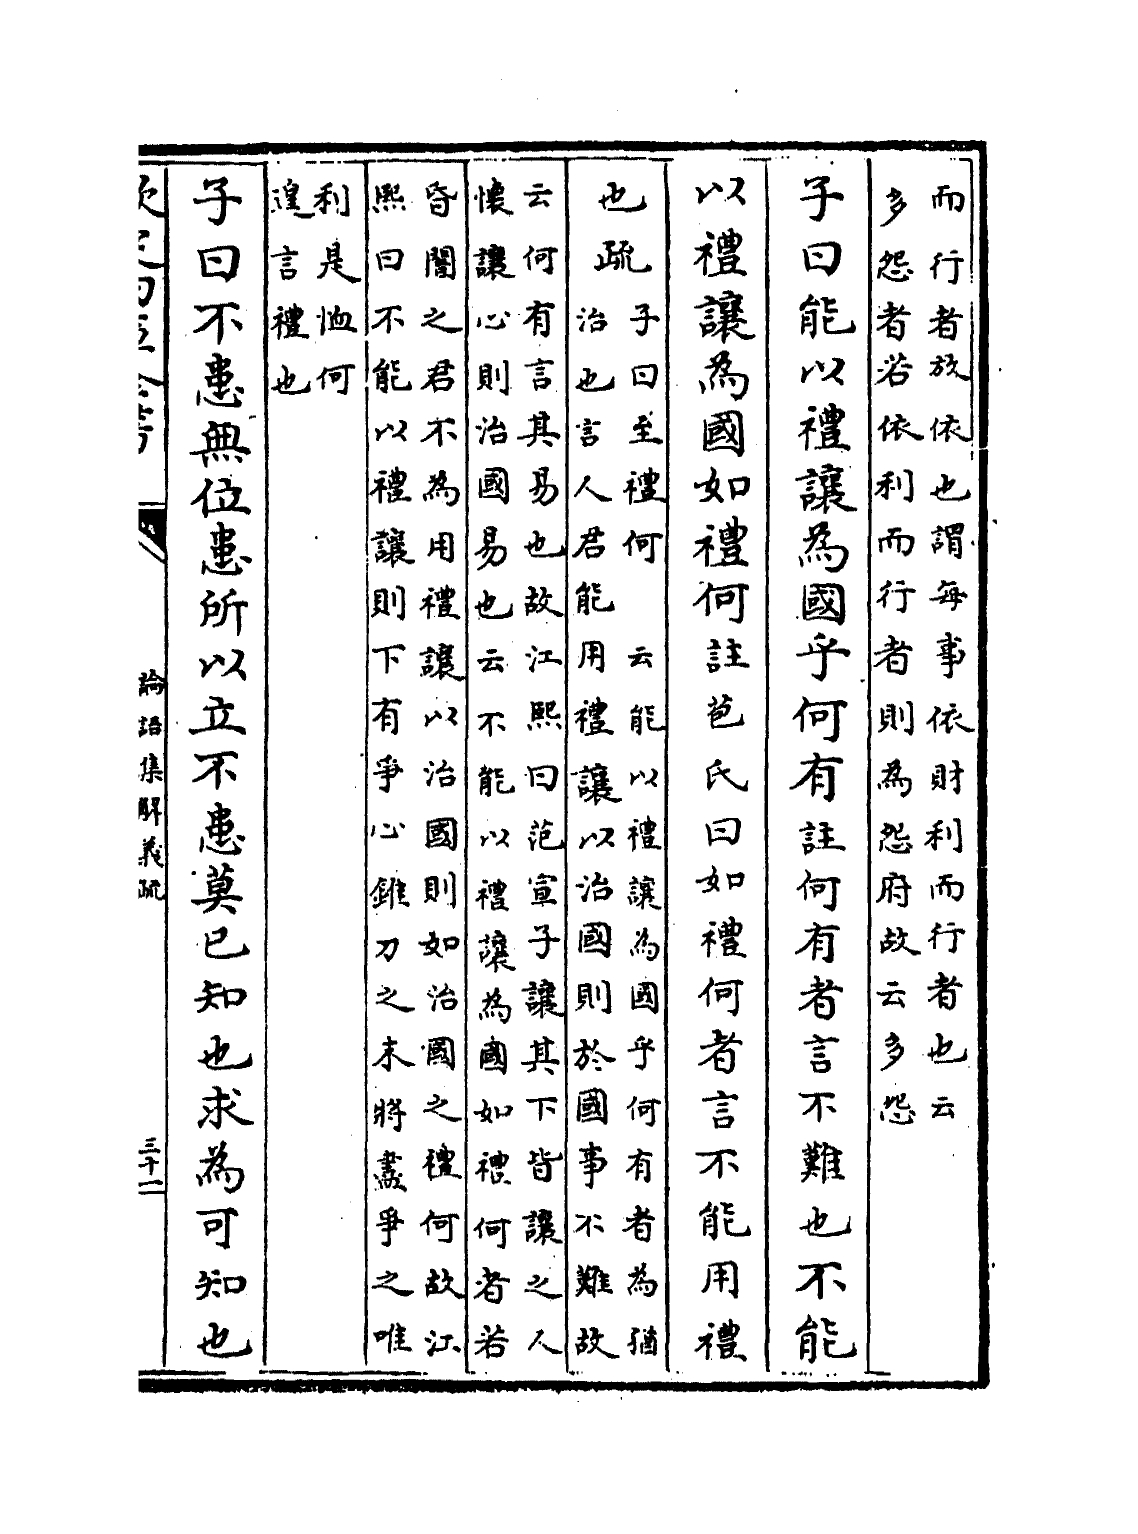 而行者放依也謂每事依財利而行者也云
多怨者若依利而行者則為怨府故云多怨
子曰能以禮讓為國乎何有註何有者言不難也不能
以禮讓為國如禮何註苞氏曰如禮何者言不能用禮
也疏
子曰至禮何　云能以禮讓為國乎何有者為猶
治也言人君能用禮讓以治國則於國事不難故
云何有言其易也故江熙曰范宣子讓其下皆讓之人
懷讓心則治國易也云不能以禮讓為國如禮何者若
昏闇之君不為用禮讓以治國則如治國之禮何故江
熙曰不能以禮讓則下有爭心錐刀之末將盡爭之唯
利是恤何
遑言禮也
子曰不患無位患所以立不患莫已知也求為可知也
欽定四庫全書
論語集解義疏
三十二